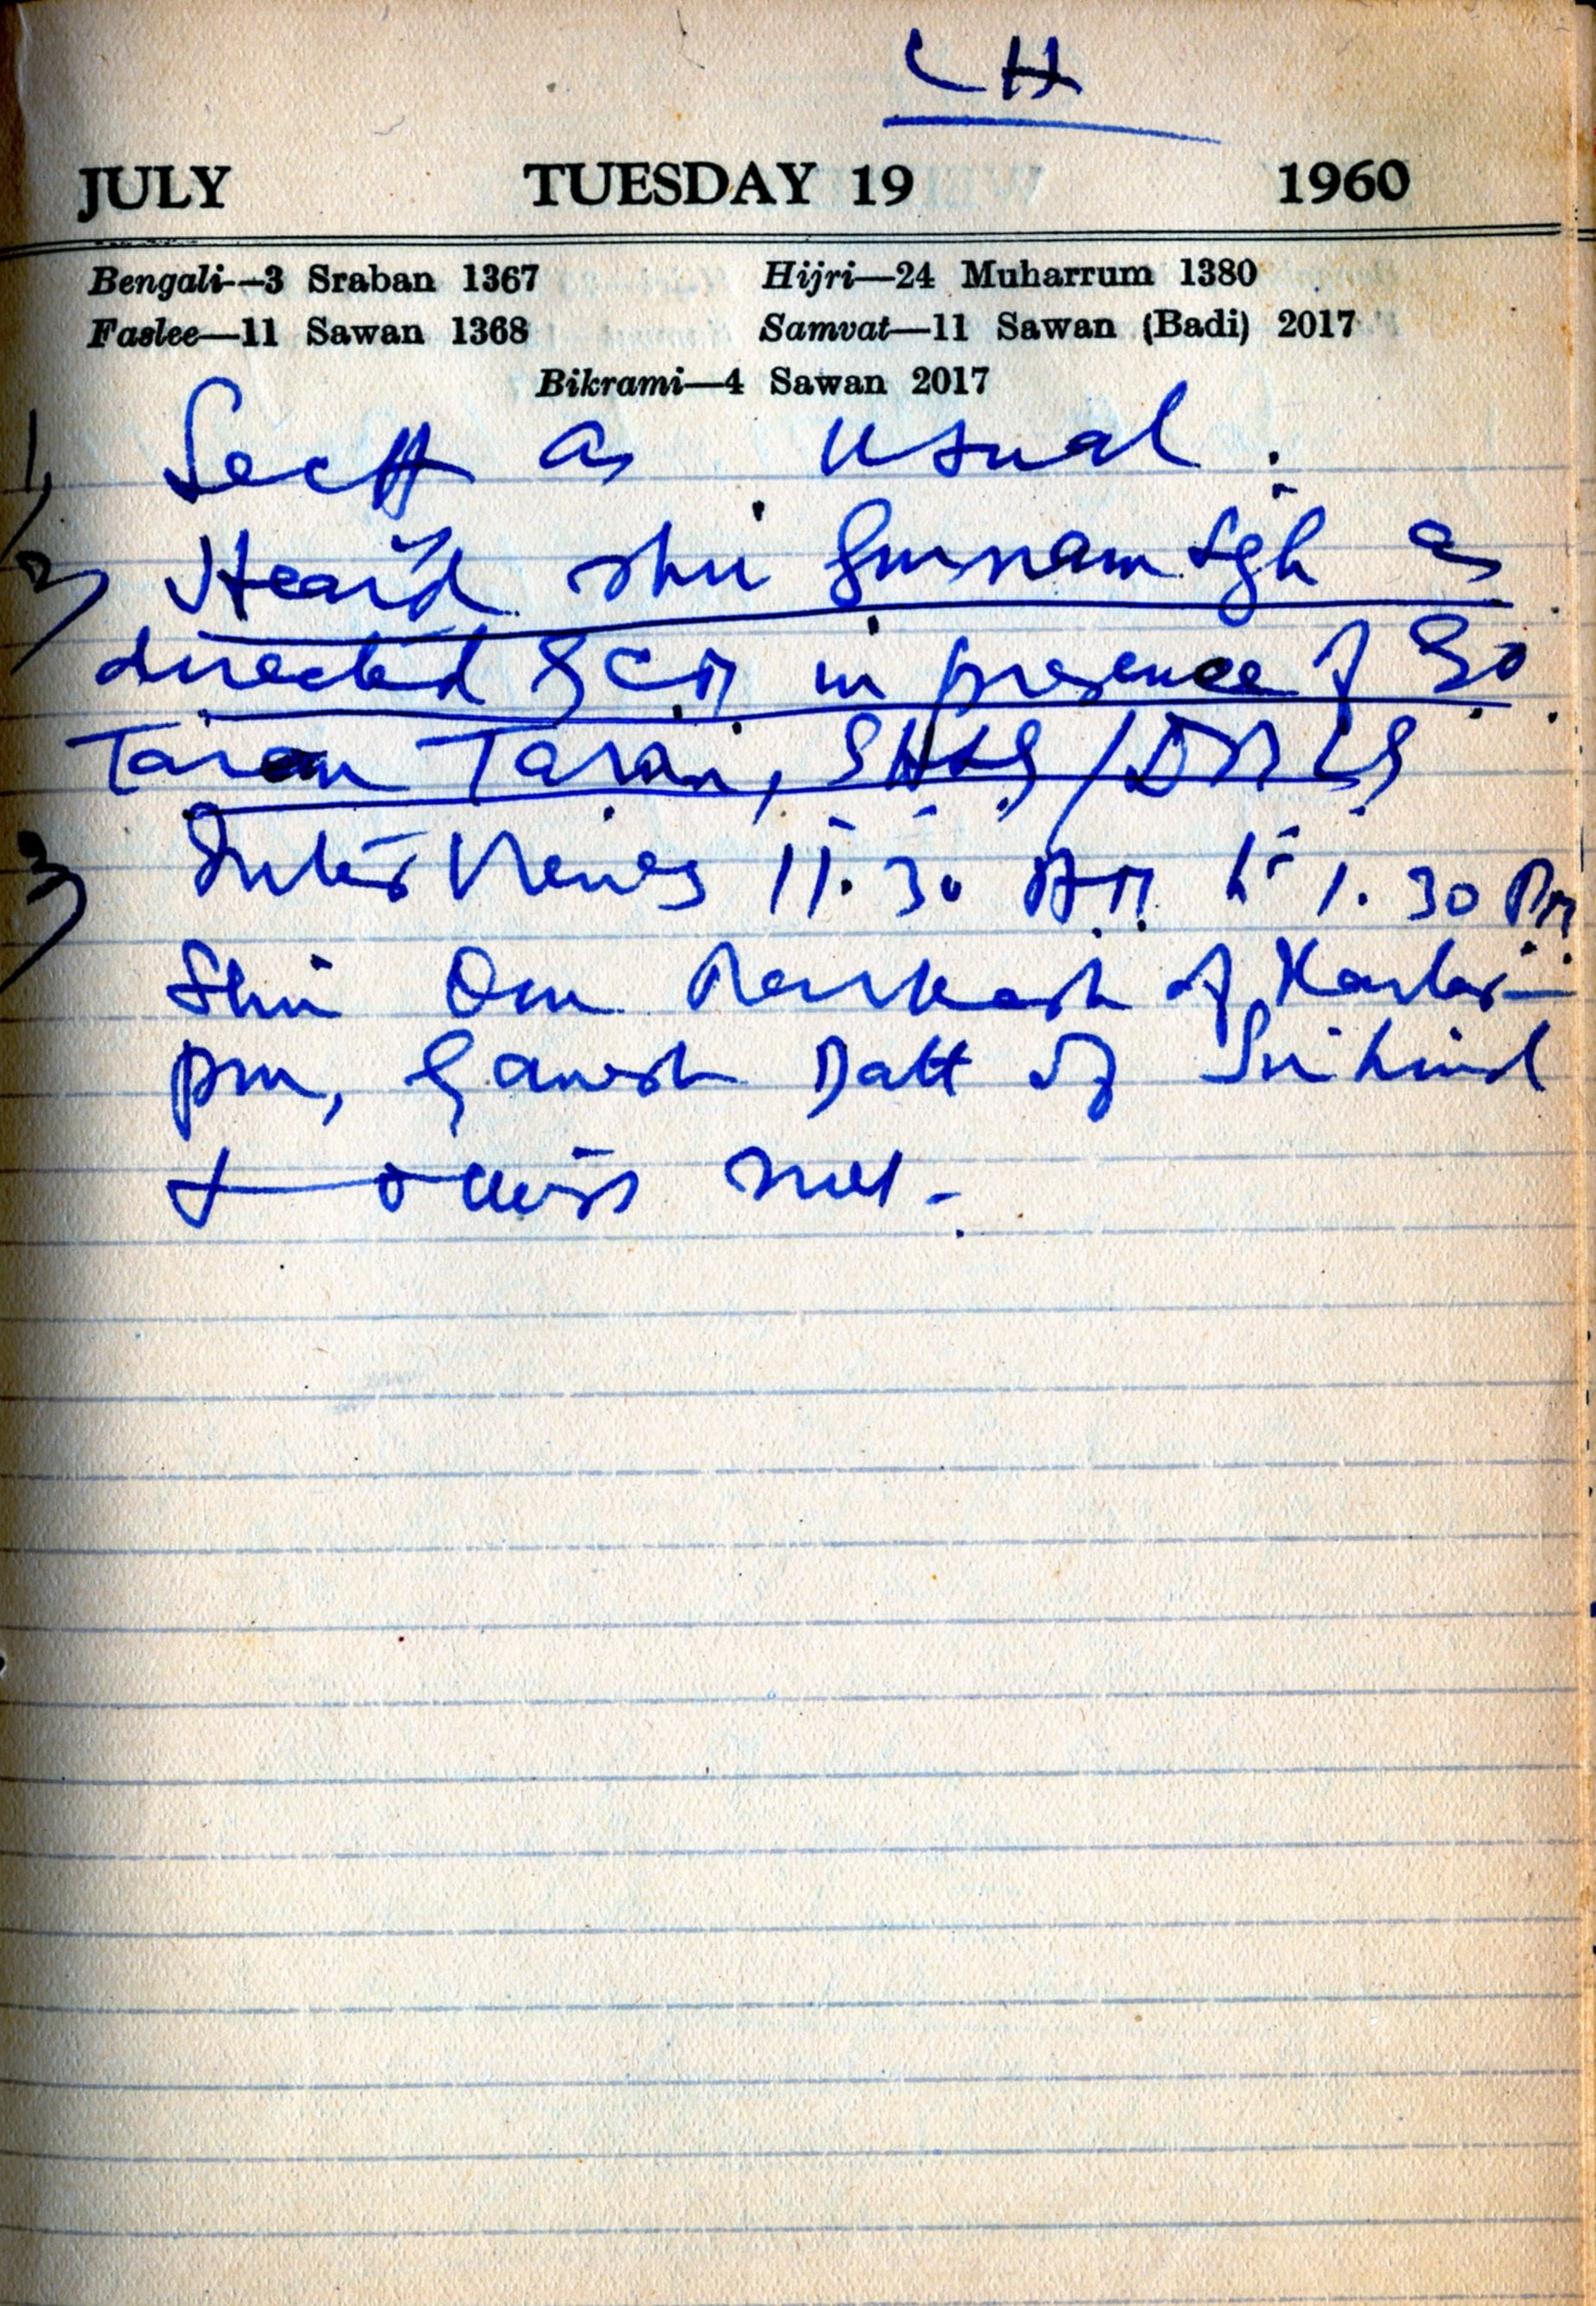 CH
JULY TUESDAY 19 1960
Bengali—3 Sraban 1367 Hijri—24 Muharrum 1380
Faslee—11 Sawan 1368 Samvat—11 Sawan (Badi) 2017
Bikrami—4 Sawan 2017
1) Sectt as usual.
2) Heard Shri Gurnam Sgh as
directed by CM in presence of SO
Taran Taran,
3) Interviews 11.30 AM to 1.30 PM
Shri Om Parkash of Kartar-
pur, Ganesh Datt of Sirhind
& others met.